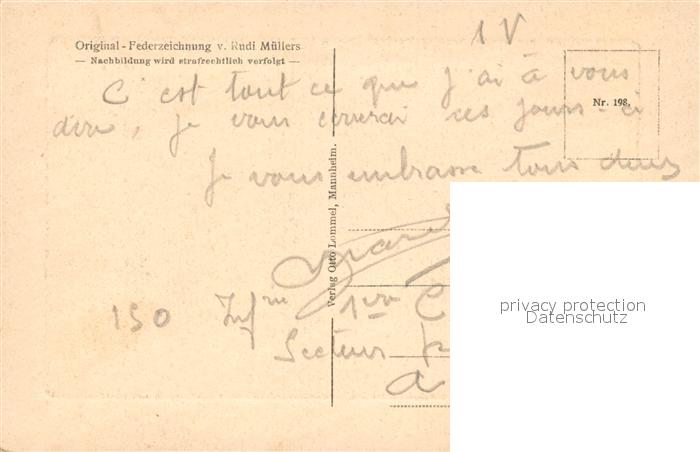 Original - Federzeichnung v. Rudi Müllers
— Nachbildung wird strafrechtlich verfolgt —
1 V
Nr. 198.
C'est tout ce que j'ai à vous
dire, je vous écrirai ces jours-ci
Je vous embrasse tous deux
Verlag Otto Lommel, Mannheim.
150 Inf
Secteur
privacy protection
Datenschutz